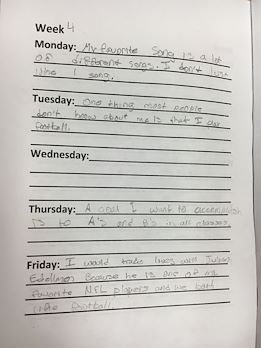 Week 4
Monday: My favorite song is a lot
of different songs. I don't just
like 1 song.
Tuesday: One thing most people
don't know about me is that I play
football.
Wednesday:
Thursday: A goal I want to accomplish
is to A's and B's in all classes.
Friday: I would trade lives with Julian
Edelman because he is one of my
favorite NFL players and we both
like football.